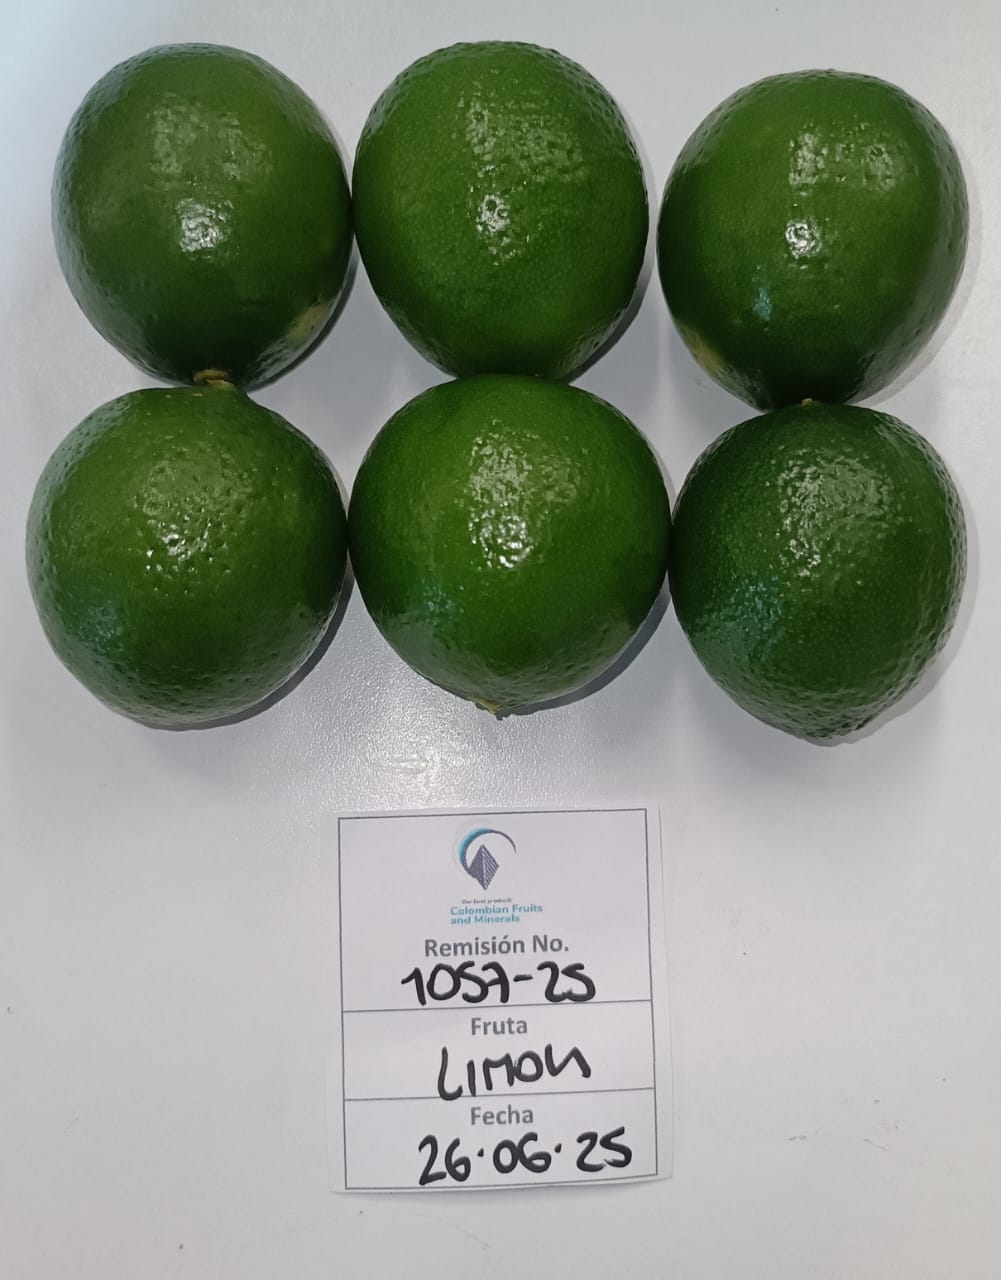 Our best products
Colombian Fruits
and Minerals
Remisión No.
1057-25
Fruta
LIMON
Fecha
26·06·25